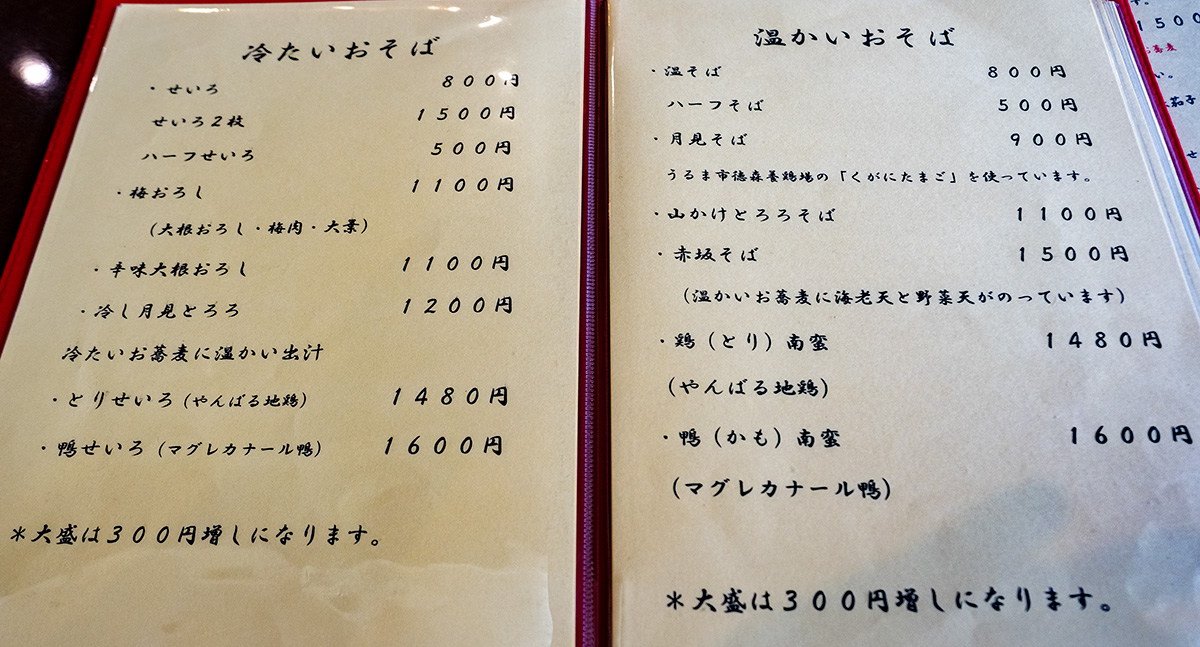 冷たいおそば
・せいろ ８００円
せいろ２枚 １５００円
ハーフせいろ ５００円
・梅おろし １１００円
（大根おろし・梅肉・大葉）
・辛味大根おろし １１００円
・冷し月見とろろ １２００円
冷たいお蕎麦に温かい出汁
・とりせいろ（やんばる地鶏） １４８０円
・鴨せいろ（マグレカナール鴨） １６００円
＊大盛は３００円増しになります。
温かいおそば
・温そば ８００円
ハーフそば ５００円
・月見そば ９００円
うるま市徳森養鶏場の「くがにたまご」を使っています。
・山かけとろろそば １１００円
・赤坂そば １５００円
（温かいお蕎麦に海老天と野菜天がのっています）
・鶏（とり）南蛮 １４８０円
（やんばる地鶏）
・鴨（かも）南蛮 １６００円
（マグレカナール鴨）
＊大盛は３００円増しになります。
１５００
お蕎麦
い。
茄子